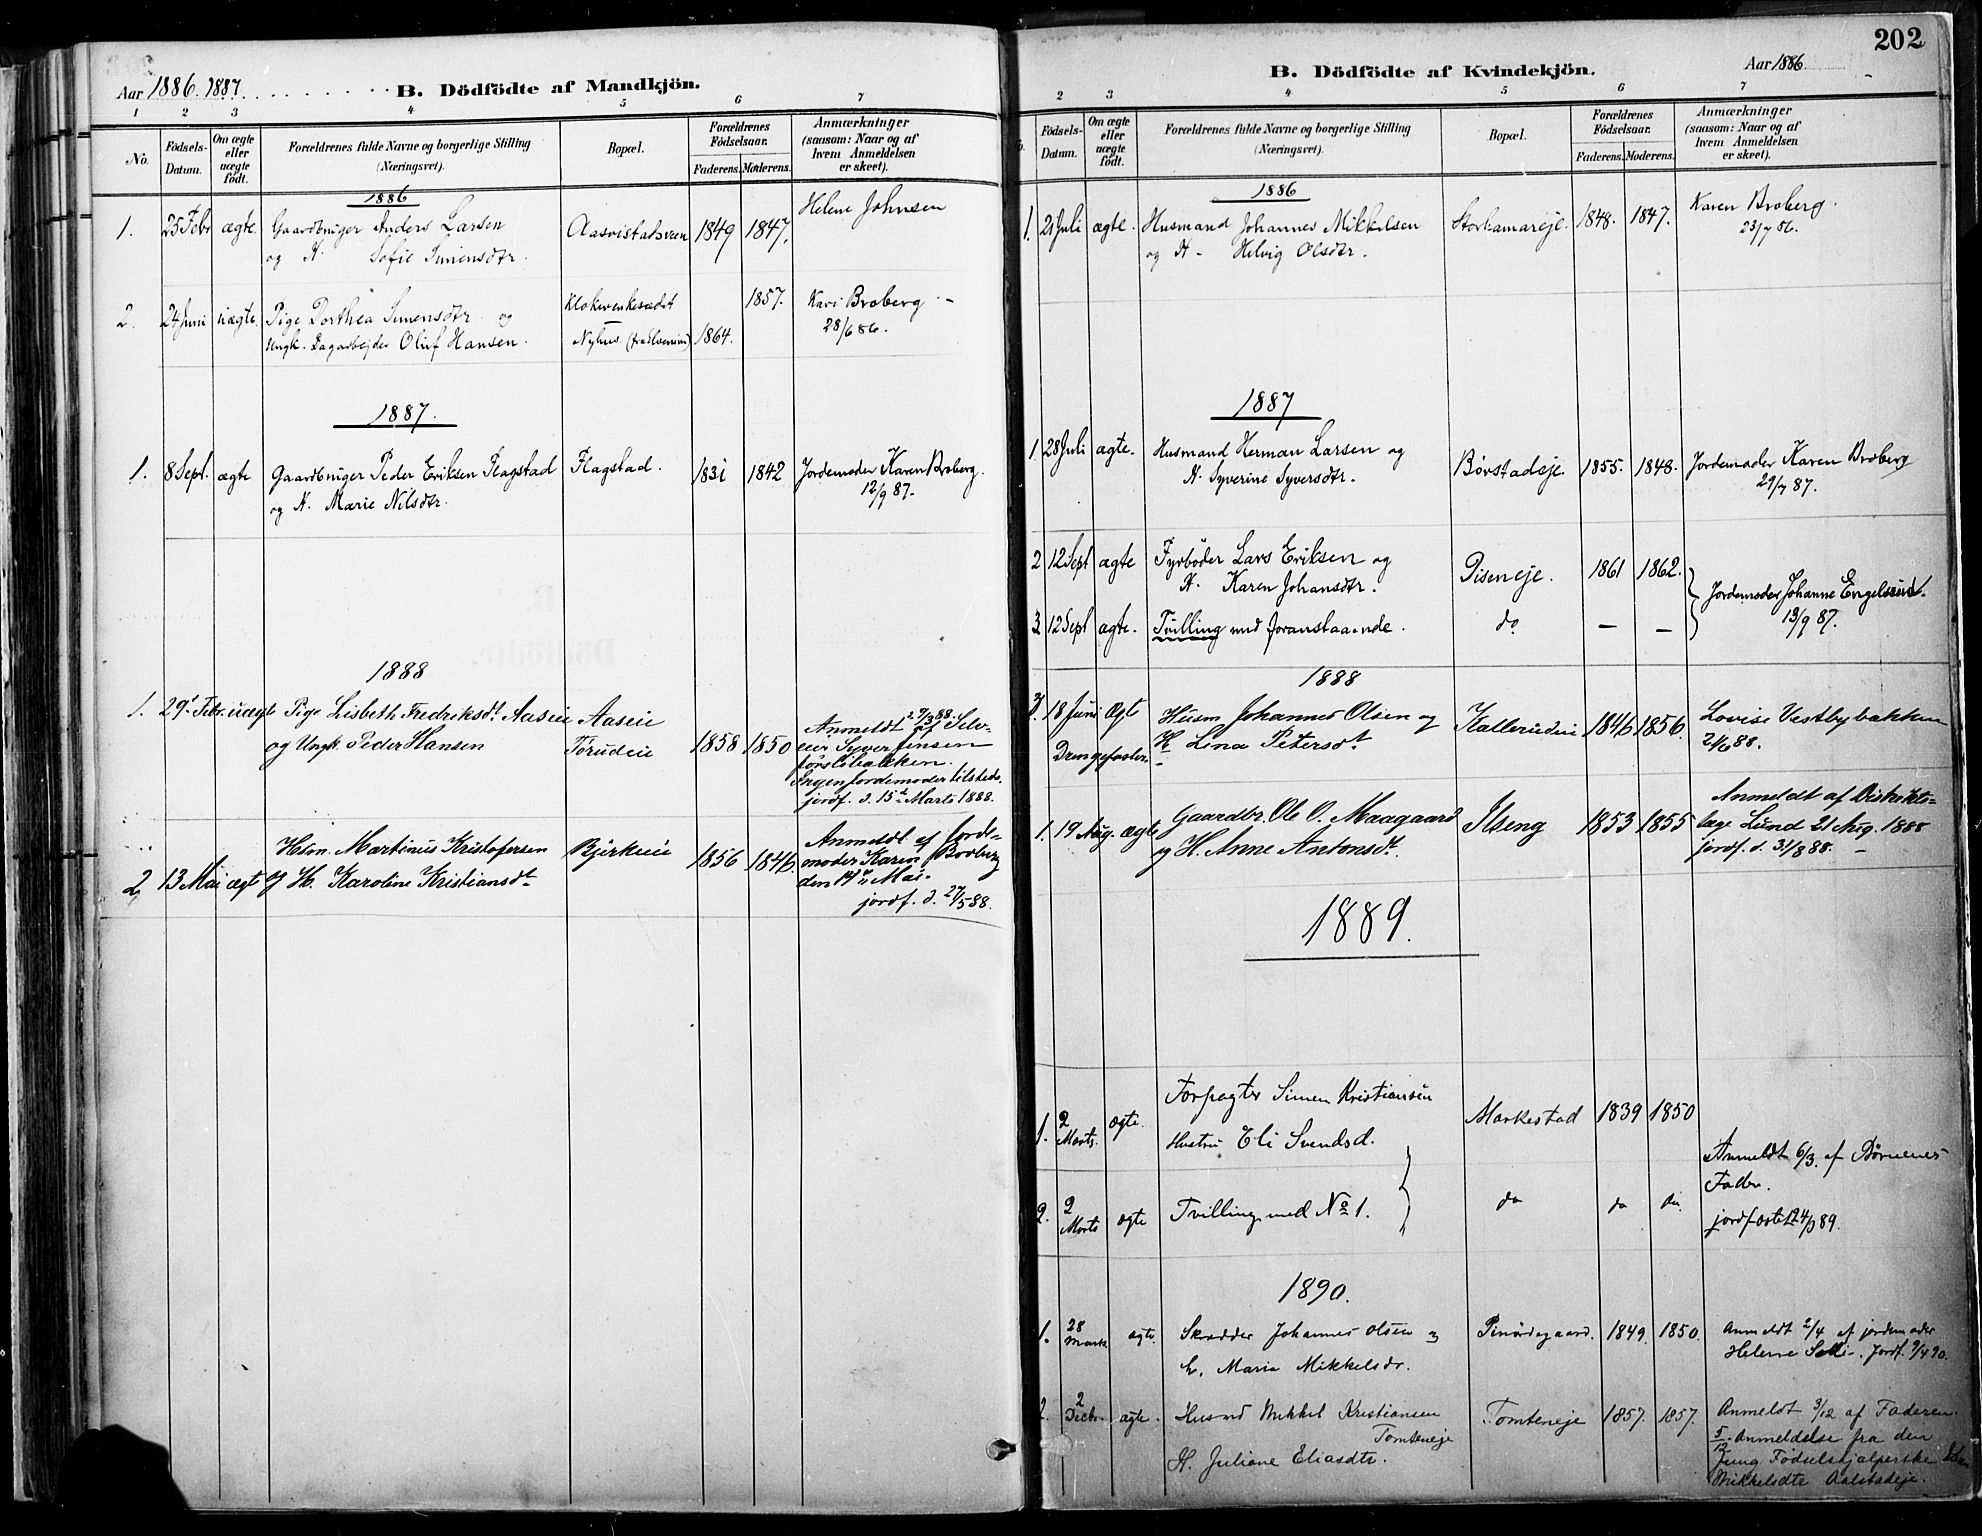 Aar 1886. 1887.
B. Dödfödte af Mandkjön.
1 2 3 4 5 6 7
No.
Födsels-Datum.
Om ægte eller uægte födt.
Forældrenes fulde Navne og borgerlige Stilling
(Næringsvei).
Bopæl.
Forældrenes Födselsaar.
Faderens. Moderens.
Anmærkninger
(saasom: Naar og af
hvem Anmeldelsen
er skeet).
1886
1. 25 Febr ægte. Gaardbruger Anders Larsen
og H. Sofie Simensdtr. 1849 1847. Helene Johnsen
2. 24 Juni uægte. Pige Dorthea Simensdtr og
Ungk. Dagarbejder Oluf Hansen.
Nyhus
1864. 1857. Kari Broberg
28/6 86.
1887.
1. 8 Sept. ægte Gaardbruger Peder Eriksen Flagstad
og H. Marie Nilsdtr. Flagstad. 1831 1842 Jordemoder Karen Broberg.
12/9 87.
1888
1. 29 Febr. uægt Pige Lisbeth Fredriksdt Aaseie
og Ungk. Peder Hansen
Aaseie
Torudeie
1858 1850
Anmeldt 2/3 88 af Selv-
eier Syver Jensen
Ingen Jordemoder tilstede.
jordf. d. 15de Marts 1888.
2 13 Mai ægt Hsm. Martinus Kristofersen
og H. Karoline Kristiansdt
Bjerkeie 1856 1846.
Anmeldt af Jorde-
moder Karen Broberg
den 14de Mai.
jordf. d. 27/5 88.
202
Aar 1886
B. Dödfödte af Kvindekjön.
2 3 4 5 6 7
Födsels-Datum.
Om ægte eller uægte födt.
Forældrenes fulde Navne og borgerlige Stilling
(Næringsvei).
Bopæl.
Forældrenes Födselsaar.
Faderens. Moderens.
Anmærkninger
(saasom: Naar og af
hvem Anmeldelsen
er skeet).
1886
1. 21 Juli ægte. Husmand Johannes Mikkelsen
og H. Helvig Olsdtr. Storhamareje. 1848. 1847. Karen Broberg.
23/7 86.
1887
1 28 Juli ægte. Husmand Herman Larsen og
H. Syverine Syversdtr. Børstadeje 1855. 1848. Jordemoder Karen Broberg
29/7 87.
2 12 Sept ægte Fyrbøder Lars Eriksen og
H. Karen Johansdtr. Diseneje. 1861 1862.
3 12 Sept ægte. Tvilling med foranstaaende. do — —
Jordemoder Johanne Engelsrud.
13/9 87.
1888
18 Juni Ægt Husm Johannes Olsen og
H Lina Petersdt Kallerudei 1846 1856. Lovise Vestbybakken
21/6 88.
1. 19 Aug. ægte Gaardbr. Ole O. Maagaard
og H. Anne Antonsdt. Ilseng 1853 1855
Anmeldt af Distrikts-
læge Lund 21 Aug. 1888
jordf. d. 31/8 88.
1889.
1. 2 Marts. ægte. Forpagter Simen Kristiansen
Hustru Eli Svendsd. Markestad 1839 1850
2. 2 Marts ægte Tvilling med No 1. do do do
Anmeldt 6/3. af Børnenes
Fader.
1890.
1. 28 Marts ægte. Skrædder Johannes Olsen og
H. Marie Mikkelsdr. 1849. 1850.
Anmeldt 2/4 af jordemoder
Helene Jordf. 9/4 90.
2. 2 Decbr. ægte. Husmd Mikkel Kristiansen
Tomteneje
H. Juliane Eliasdtr. Tomteneje 1857. 1857.
Anmeldt 3/12 af Faderen.
5/12 Anmeldelse fra den
Fødselshjælperske
Mikkelsdtr